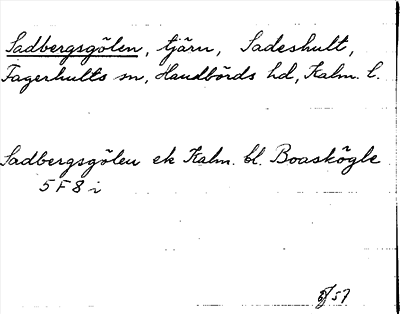 Sadbergsgölen, tjärn, Sadeshult,
Fagerhults sn, Handbörds hd, Kalm. l.
Sadbergsgölen ek Kalm. bl. Boaskögle
5 F 8 i
57